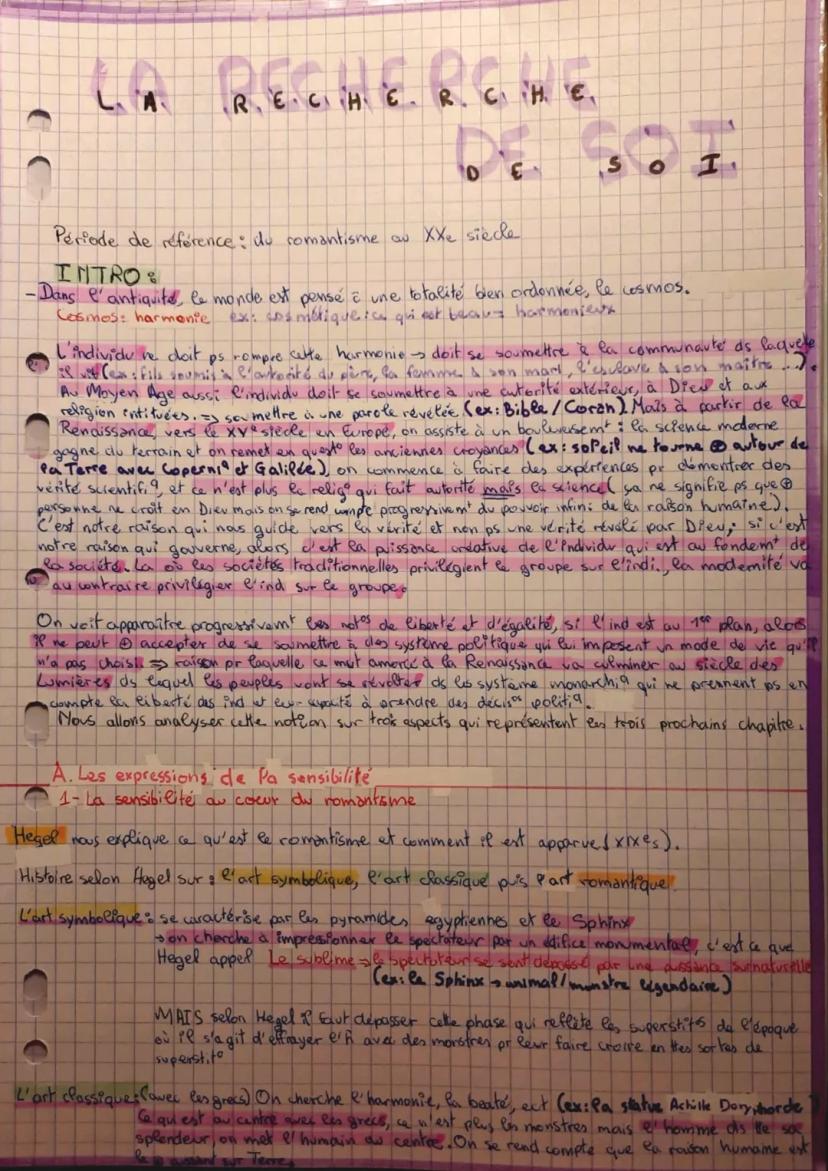 LA RECHERCHE
DE SOI
Période de référence : du romantisme au XXe siècle
INTRO :
- Dans l'antiquité, le monde est pensé c̄ une totalité bien ordonnée, le cosmos.
Cosmos : harmonie ex : cosmétique : ce qui est beau → harmonieux
L'individu ne doit ps rompre cette harmonie → doit se soumettre à la communauté ds laquelle
il vit (ex : fils soumis à l'autorité du père, la femme à son mari, l'esclave à son maître ...).
Au Moyen Age aussi l'individu doit se soumettre à une autorité extérieure, à Dieu et aux
religion intituées. => soumettre à une parole révélée (ex : Bible / Coran) Mais à partir de la
Renaissance, vers le XVe siècle en Europe, on assiste à un bouleversemt : la science moderne
gagne du terrain et on remet en questo les anciennes croyances (ex : soleil ne tourne ⊕ autour de
la Terre avec Coperniq et Galilée), on commence à faire des expériences pr démontrer des
vérité scientifiq, et ce n'est plus la religo qui fait autorité mais la science (ça ne signifie ps que ⊕
personne ne croit en Dieu mais on se rend compte progressivemt du pouvoir infini de la raison humaine).
C'est notre raison qui nous guide vers la vérité et non ps une vérité révélé par Dieu ; si c'est
notre raison qui gouverne, alors c'est la puissance créative de l'individu qui est au fondemt de
la société. La où les sociétés traditionnelles privilégient le groupe sur l'indi., la modernité va
au contraire privilégier l'ind sur le groupe.
On voit apparaître progressivemt les notos de liberté et d'égalité, si l'ind est au 1er plan, alors
il ne peut ⊕ accepter de se soumettre à des système politique qui lui imposent un mode de vie qu'il
n'a pas choisi => raison pr laquelle ce mvt amorcé à la Renaissance va culminer au siècle des
Lumières ds lequel les peuples vont se révolter ds les système monarchiq qui ne prennent ps en
compte la liberté des ind et leur capacité à prendre des déciso politiq.
Nous allons analyser cette notion sur trois aspects qui représentent les trois prochains chapitre.
A. Les expressions de la sensibilité
1- La sensibilité au coeur du romantisme
Hegel nous explique ce qu'est le romantisme et comment il est apparue (XIXe s).
Histoire selon Hegel sur : l'art symbolique, l'art classique puis l'art romantique
L'art symbolique : se caractérise par les pyramides egyptiennes et le Sphinx
→ on cherche à impressionner le spectateur par un édifice monumental, c'est ce que
Hegel appel Le sublime → le spectateur se sent dépassé par une puissance surnaturelle
(ex : le Sphinx → animal/monstre légendaire)
MAIS selon Hegel il faut dépasser cette phase qui reflète les superstitos de l'époque
où il s'agit d'effrayer l'H avec des monstres pr leur faire croire en ttes sortes de
superstito
L'art classique : (avec les grecs) On cherche l'harmonie, la beaté, ect (ex : la statue Achille Doryphorde)
Ce qui est au centre avec les grecs, ce n'est plus les monstres mais l'homme ds tte sa
splendeur, on met l'humain au centre. On se rend compte que la raison humaine est
le ⊕ puissant sur Terre.